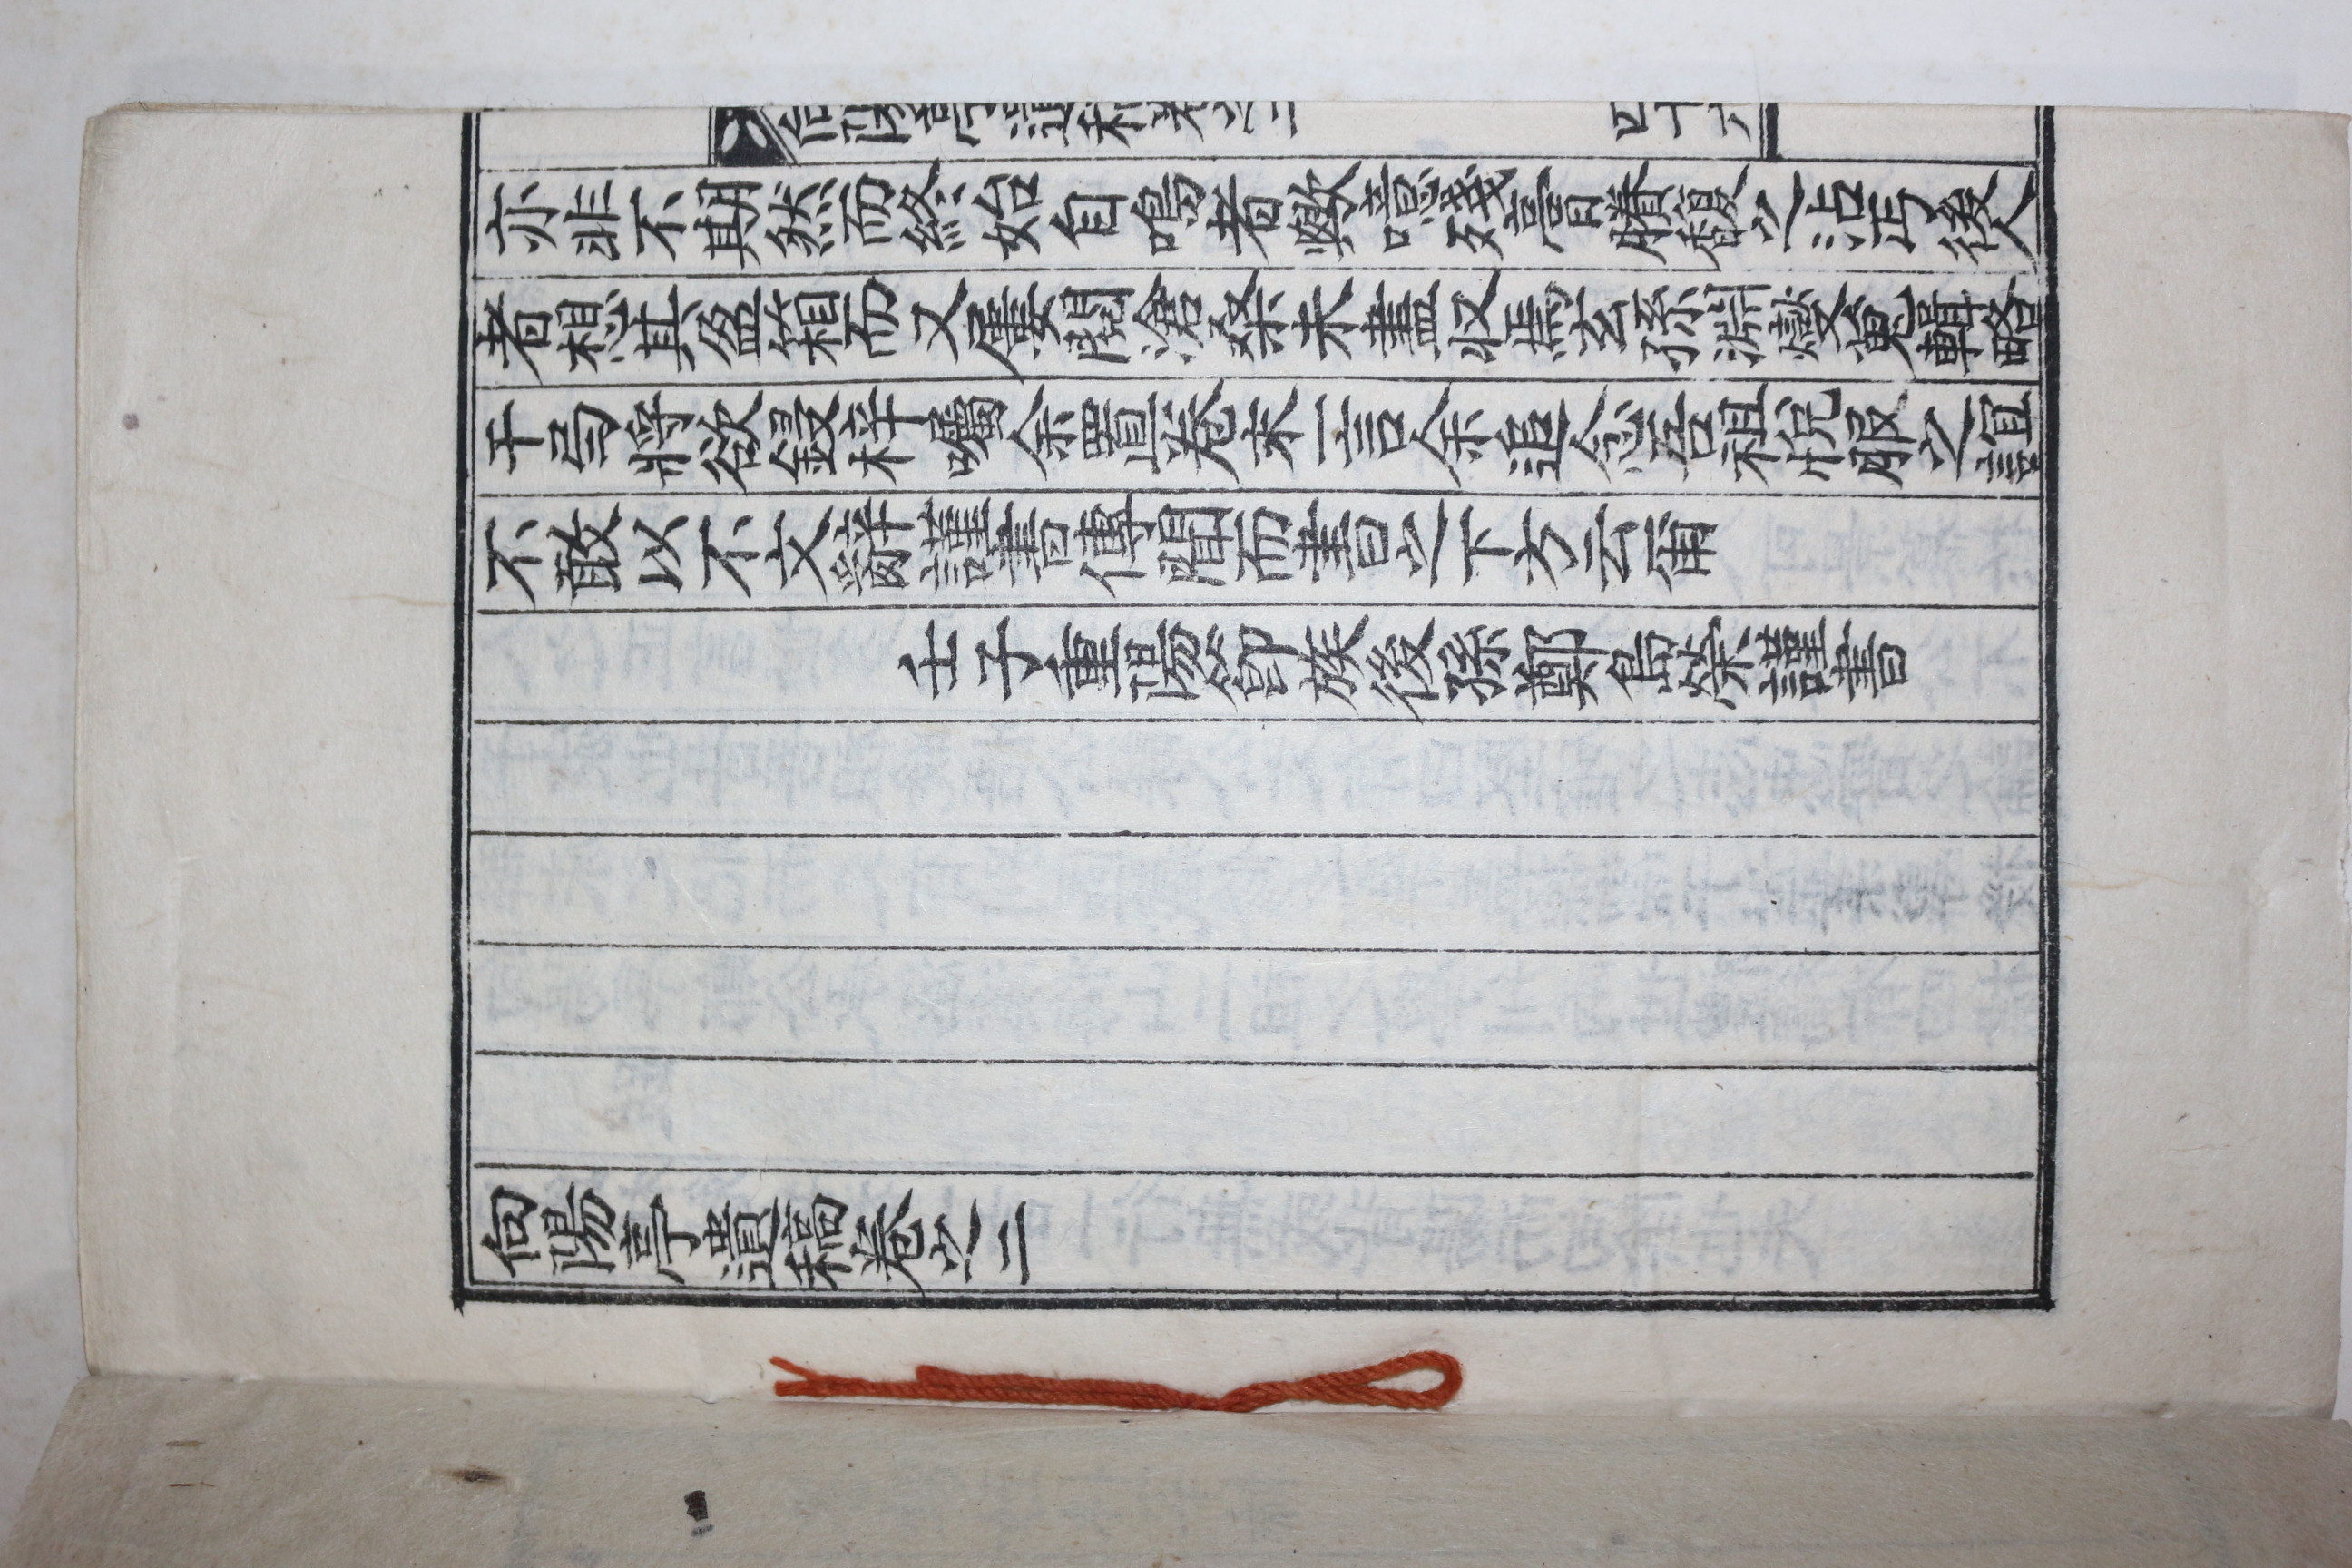 向陽亭遺稿卷之二 四十六
亦非不期然而終始自鳴者歟噫殘膏賸馥之沾丐後人
者想其盈箱而又屢閱滄桑未盡収焉玄孫淵燮蒐輯略
干弓將欲鋟梓囑余置卷末一言余追念吾祖悅服之誼
不敢以不文辭謹書傳聞而書之下方云爾
壬子重陽節族後孫鄭島榮謹書
向陽亭遺稿卷之二